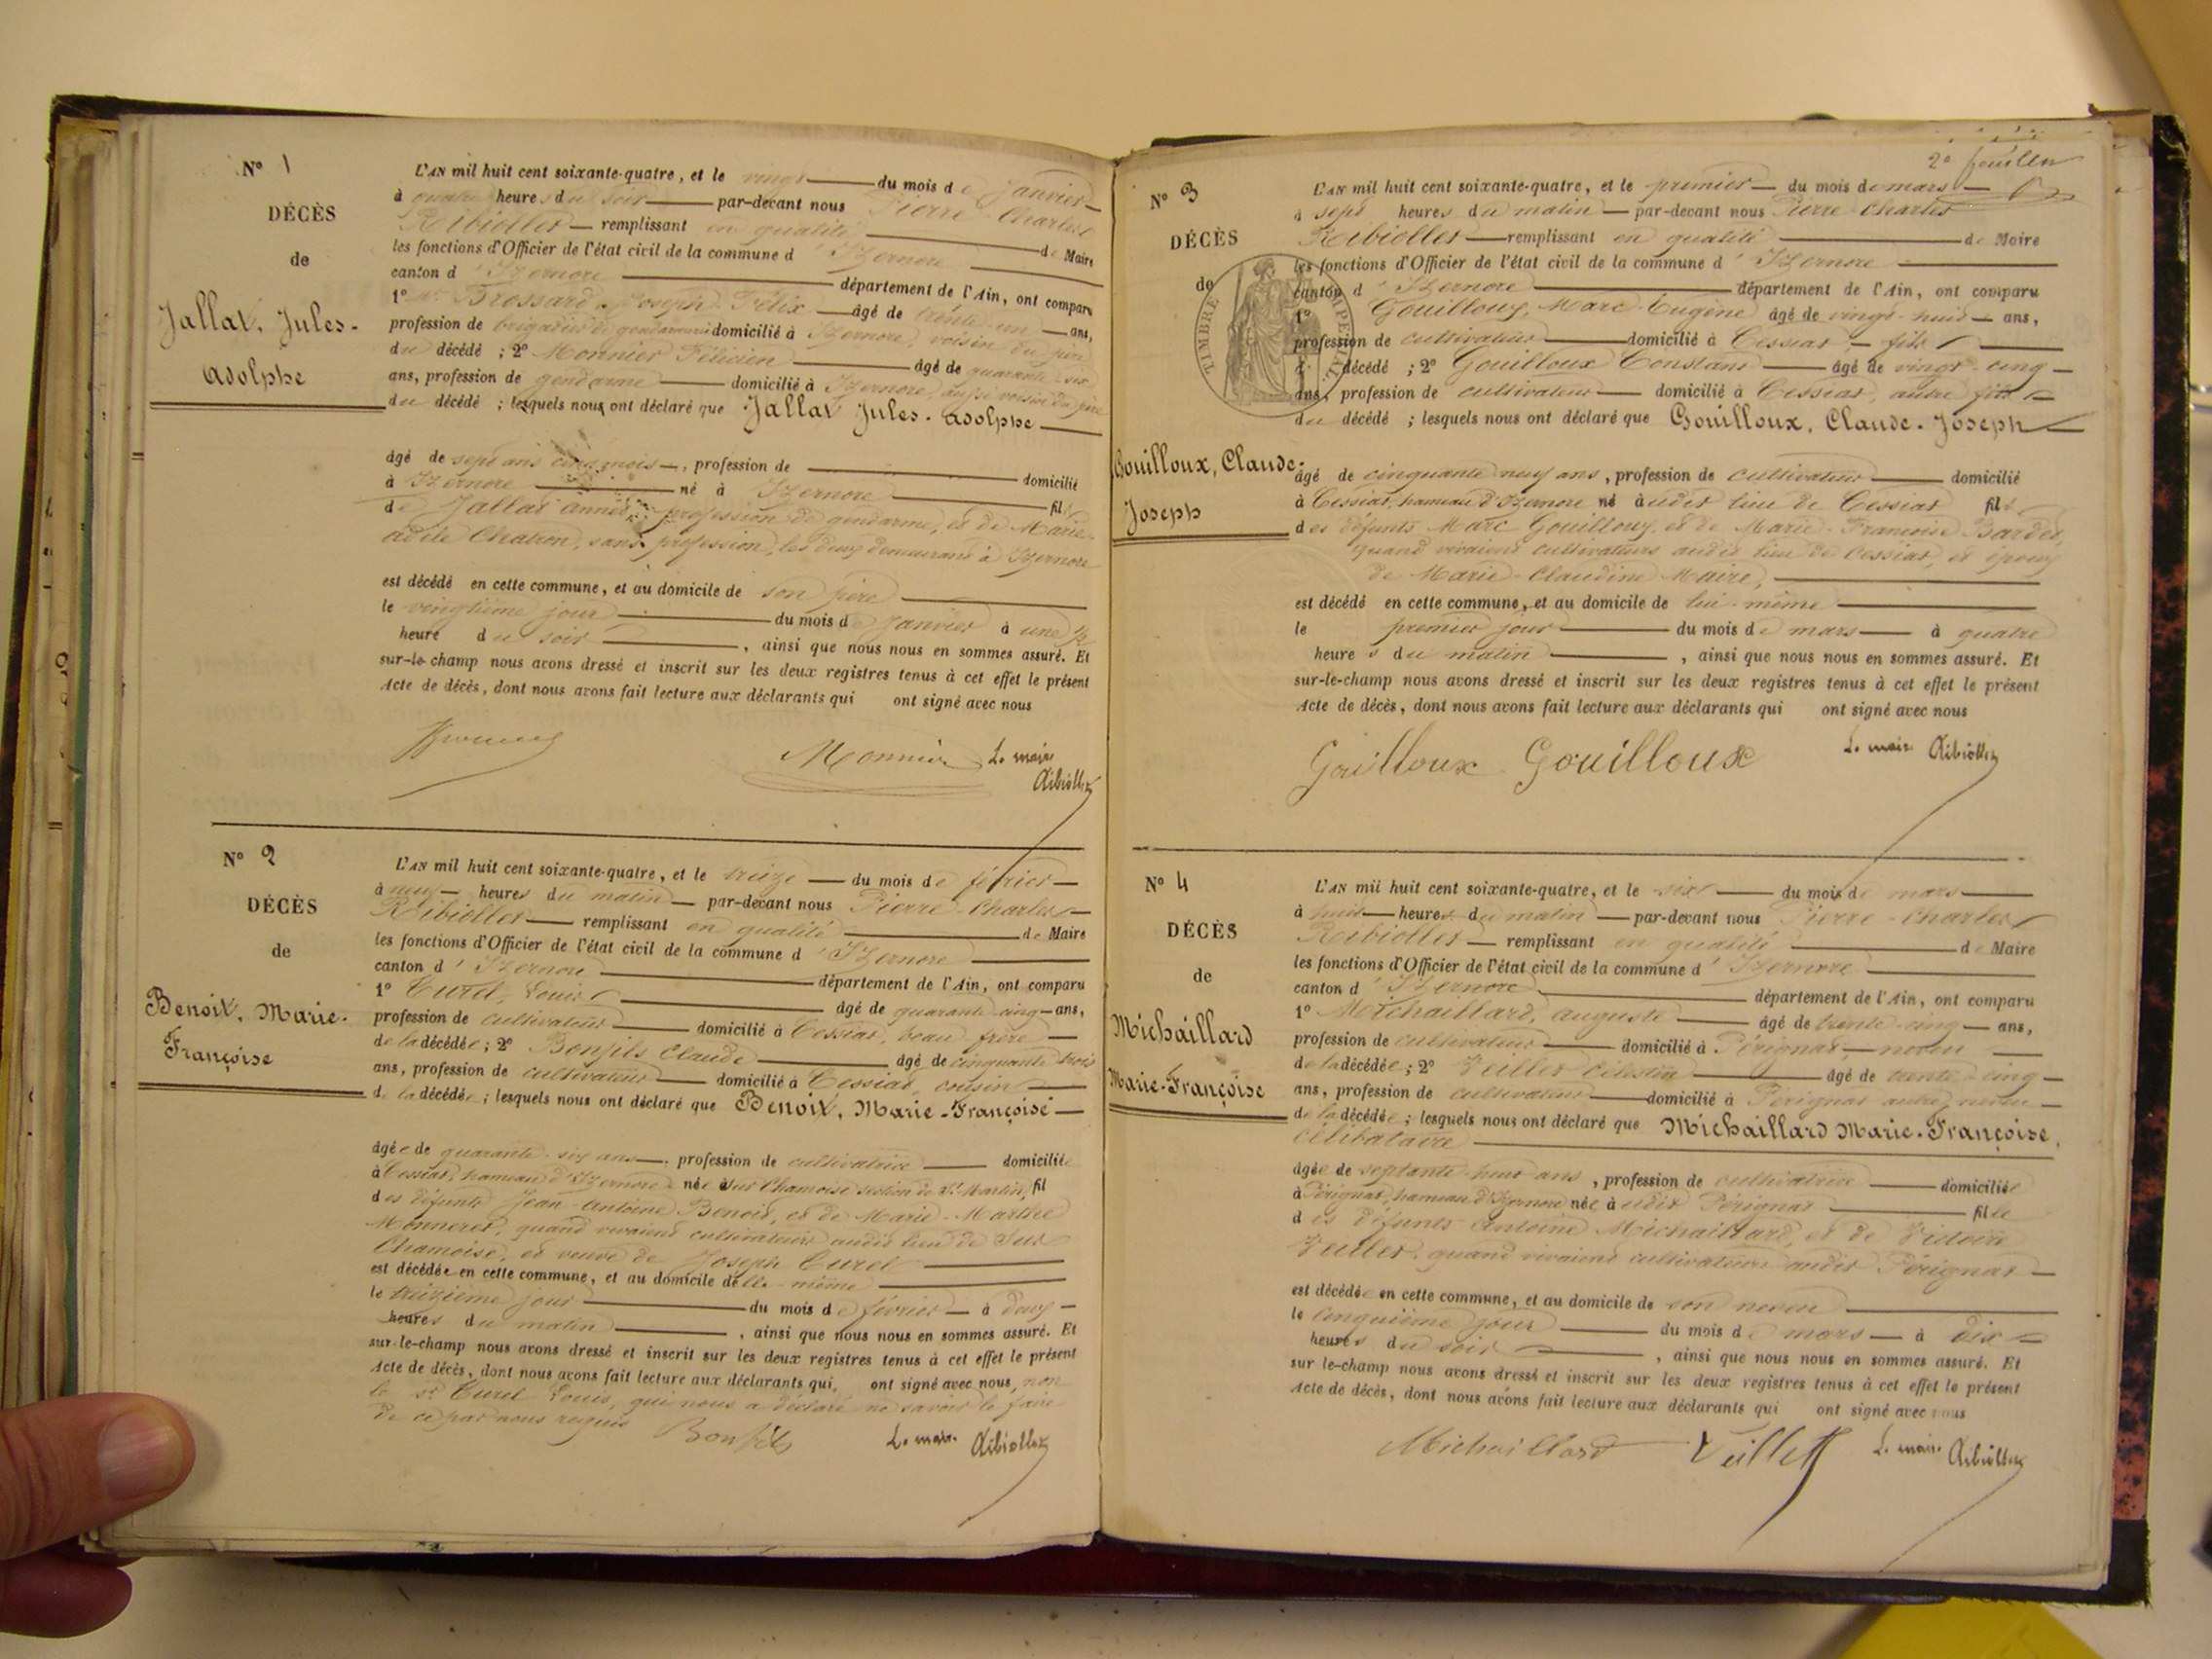 N° 1
DÉCÈS
de
Jallat, Jules-
Adolphe
L'AN mil huit cent soixante-quatre, et le vingt du mois de janvier
à quatre heures du soir par-devant nous Pierre Charles
Ribiollet remplissant en qualité de Maire
les fonctions d'Officier de l'état civil de la commune d'Izernore
canton d'Izernore département de l'Ain, ont comparu
1° Brossard Joseph Félix âgé de trente un ans,
profession de brigadier de gendarmerie domicilié à Izernore, voisin du père
du décédé ; 2° Monnier Félicien âgé de quarante six
ans, profession de gendarme domicilié à Izernore, aussi voisin du père
du décédé ; lesquels nous ont déclaré que Jallat Jules-Adolphe
âgé de sept ans cinq mois, profession de domicilié
à Izernore né à Izernore fils
de Jallat profession de gendarme, et de Marie
Adèle Chatron, sans profession, les deux demeurant à Izernore
est décédé en cette commune, et au domicile de son père
le vingtième jour du mois de janvier à une ½
heure du soir, ainsi que nous nous en sommes assuré. Et
sur-le-champ nous avons dressé et inscrit sur les deux registres tenus à cet effet le présent
Acte de décès, dont nous avons fait lecture aux déclarants qui ont signé avec nous
Monnier Le maire
Ribiollet
N° 2
DÉCÈS
de
Benoit, Marie-
Françoise
L'AN mil huit cent soixante-quatre, et le treize du mois de février
à neuf heures du matin par-devant nous Pierre-Charles
Ribiollet remplissant en qualité de Maire
les fonctions d'Officier de l'état civil de la commune d'Izernore
canton d'Izernore département de l'Ain, ont comparu
1° Curel, Louis âgé de quarante cinq ans,
profession de cultivateur domicilié à Cessiat, beau frère
de la décédée ; 2° Bonfils Claude âgé de cinquante trois
ans, profession de cultivateur domicilié à Cessiat, cousin
de la décédée ; lesquels nous ont déclaré que Benoit, Marie-Françoise
âgée de quarante-six ans profession de cultivatrice domiciliée
à Cessiat, hameau d'Izernore née à Sur Chamoise section de St Martin, fil
des défunts Jean-Antoine Benoit, et de Marie-Marthe
Monneret, quand vivaient cultivateurs audit lieu de Sur
Chamoise, et veuve de Joseph Curel
est décédée en cette commune, et au domicile d'elle-même
le treizième jour du mois de février à deux
heures du matin, ainsi que nous nous en sommes assuré. Et
sur-le-champ nous avons dressé et inscrit sur les deux registres tenus à cet effet le présent
Acte de décès, dont nous avons fait lecture aux déclarants qui, ont signé avec nous, non
le sr Curel Louis, qui nous a déclaré ne savoir le faire
de ce par nous requis Bonfils Le maire Ribiollet
2e feuillet
N° 3
DÉCÈS
de
TIMBRE IMPÉRIAL
Gouilloux, Claude-
Joseph
L'AN mil huit cent soixante-quatre, et le premier du mois de mars
à sept heures du matin par-devant nous Pierre-Charles
Ribiollet remplissant en qualité de Maire
les fonctions d'Officier de l'état civil de la commune d'Izernore
canton d'Izernore département de l'Ain, ont comparu
1° Gouilloux, Marc-Eugène âgé de vingt-huit ans,
profession de cultivateur domicilié à Cessiat fils
du décédé ; 2° Gouilloux Constant âgé de vingt-cinq
ans, profession de cultivateur domicilié à Cessiat, autre fils
du décédé ; lesquels nous ont déclaré que Gouilloux, Claude-Joseph
âgé de cinquante neuf ans, profession de cultivateur domicilié
à Cessiat, hameau d'Izernore né audit lieu de Cessiat fils
des défunts Marc Gouilloux et de Marie-Françoise Bardet,
quand vivaient cultivateurs audit lieu de Cessiat, et époux
de Marie-Claudine Maire,
est décédé en cette commune, et au domicile de lui-même
le premier jour du mois de mars à quatre
heures du matin, ainsi que nous nous en sommes assuré. Et
sur-le-champ nous avons dressé et inscrit sur les deux registres tenus à cet effet le présent
Acte de décès, dont nous avons fait lecture aux déclarants qui ont signé avec nous
Gouilloux Gouilloux Le maire Ribiollet
N° 4
DÉCÈS
de
Michaillard
Marie-Françoise
L'AN mil huit cent soixante-quatre, et le six du mois de mars
à huit heures du matin par-devant nous Pierre-Charles
Ribiollet remplissant en qualité de Maire
les fonctions d'Officier de l'état civil de la commune d'Izernore
canton d'Izernore département de l'Ain, ont comparu
1° Michaillard, Auguste âgé de trente-cinq ans,
profession de cultivateur domicilié à Pérignat, neveu
de la décédée ; 2° Veillet Célestin âgé de trente-cinq
ans, profession de cultivateur domicilié à Pérignat autre neveu
de la décédée ; lesquels nous ont déclaré que Michaillard Marie-Françoise,
célibataire
âgée de septante-huit ans, profession de cultivatrice domiciliée
à Pérignat, hameau d'Izernore née audit Pérignat fille
des défunts Antoine Michaillard, et de Victoire
Veillet, quand vivaient cultivateurs audit Pérignat
est décédée en cette commune, et au domicile de son neveu
le cinquième jour du mois de mars à dix
heures du soir, ainsi que nous nous en sommes assuré. Et
sur le-champ nous avons dressé et inscrit sur les deux registres tenus à cet effet le présent
Acte de décès, dont nous avons fait lecture aux déclarants qui ont signé avec nous
Michaillard Veillet Le maire Ribiollet